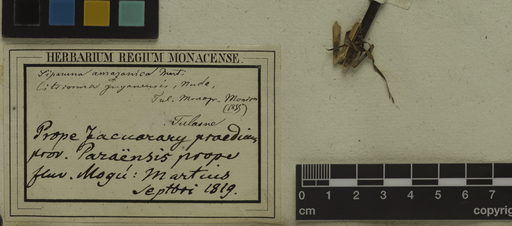 HERBARIUM REGIUM MONACENSE.
Siparuna amazonica Mart.
Citriosma guyanensis, nuda,
Tul. Monogr. Monim
(1855)
Tulasne
Prope Jacuarary praedium
prov. Paraënsis prope
fluv. Mogú: Martius
Septbri 1819.
0 1 2 3 4 5 6 7
cm
copyrig